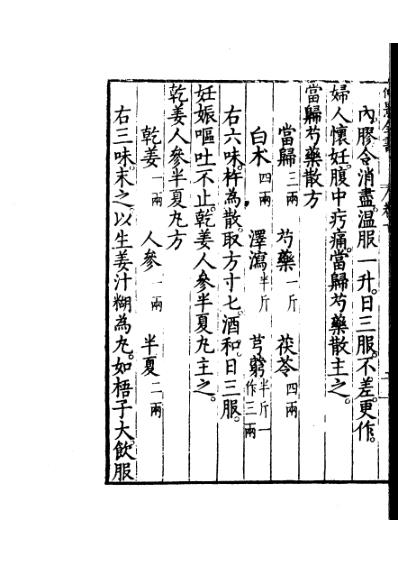 內膠令消盡。溫服一升。日三服。不差更作。
婦人懷妊。腹中㽲痛。當歸芍藥散主之。
當歸芍藥散方
當歸三兩 芍藥一斤 茯苓四兩
白朮四兩 澤瀉半斤 芎藭半斤一作三兩
右六味。杵為散。取方寸七。酒和。日三服。
妊娠嘔吐不止。乾姜人參半夏丸主之。
乾姜人參半夏丸方
乾姜一兩 人參一兩 半夏二兩
右三味。末之。以生姜汁糊為丸。如梧子大。飲服